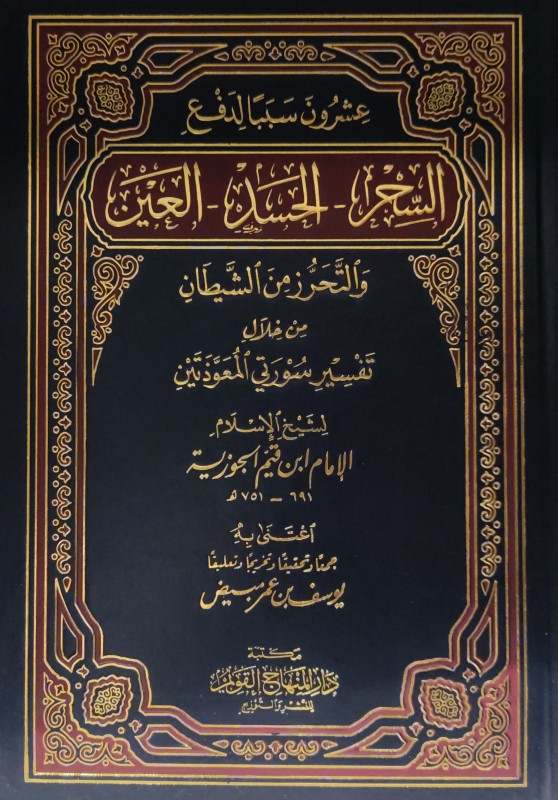 عِشْرُونَ سَبَبًا لِدَفْعِ
السِّحْرِ - الحَسَدِ - العَيْنِ
وَالتَّحَرُّزِ مِنَ الشَّيْطَانِ
مِنْ خِلَالِ
تَفْسِيرِ سُورَتَيِ المُعَوِّذَتَيْنِ
لِشَيْخِ الإِسْلَامِ
الإمام ابن قيم الجوزية
٦٩١ - ٧٥١ هـ
اعْتَنَى بِهِ
جمعًا وتحقيقًا وتخريجًا وتعليقًا
يوسف بن عمر مبيض
مكتبة
دار المنهاج القويم
للنشر والتوزيع